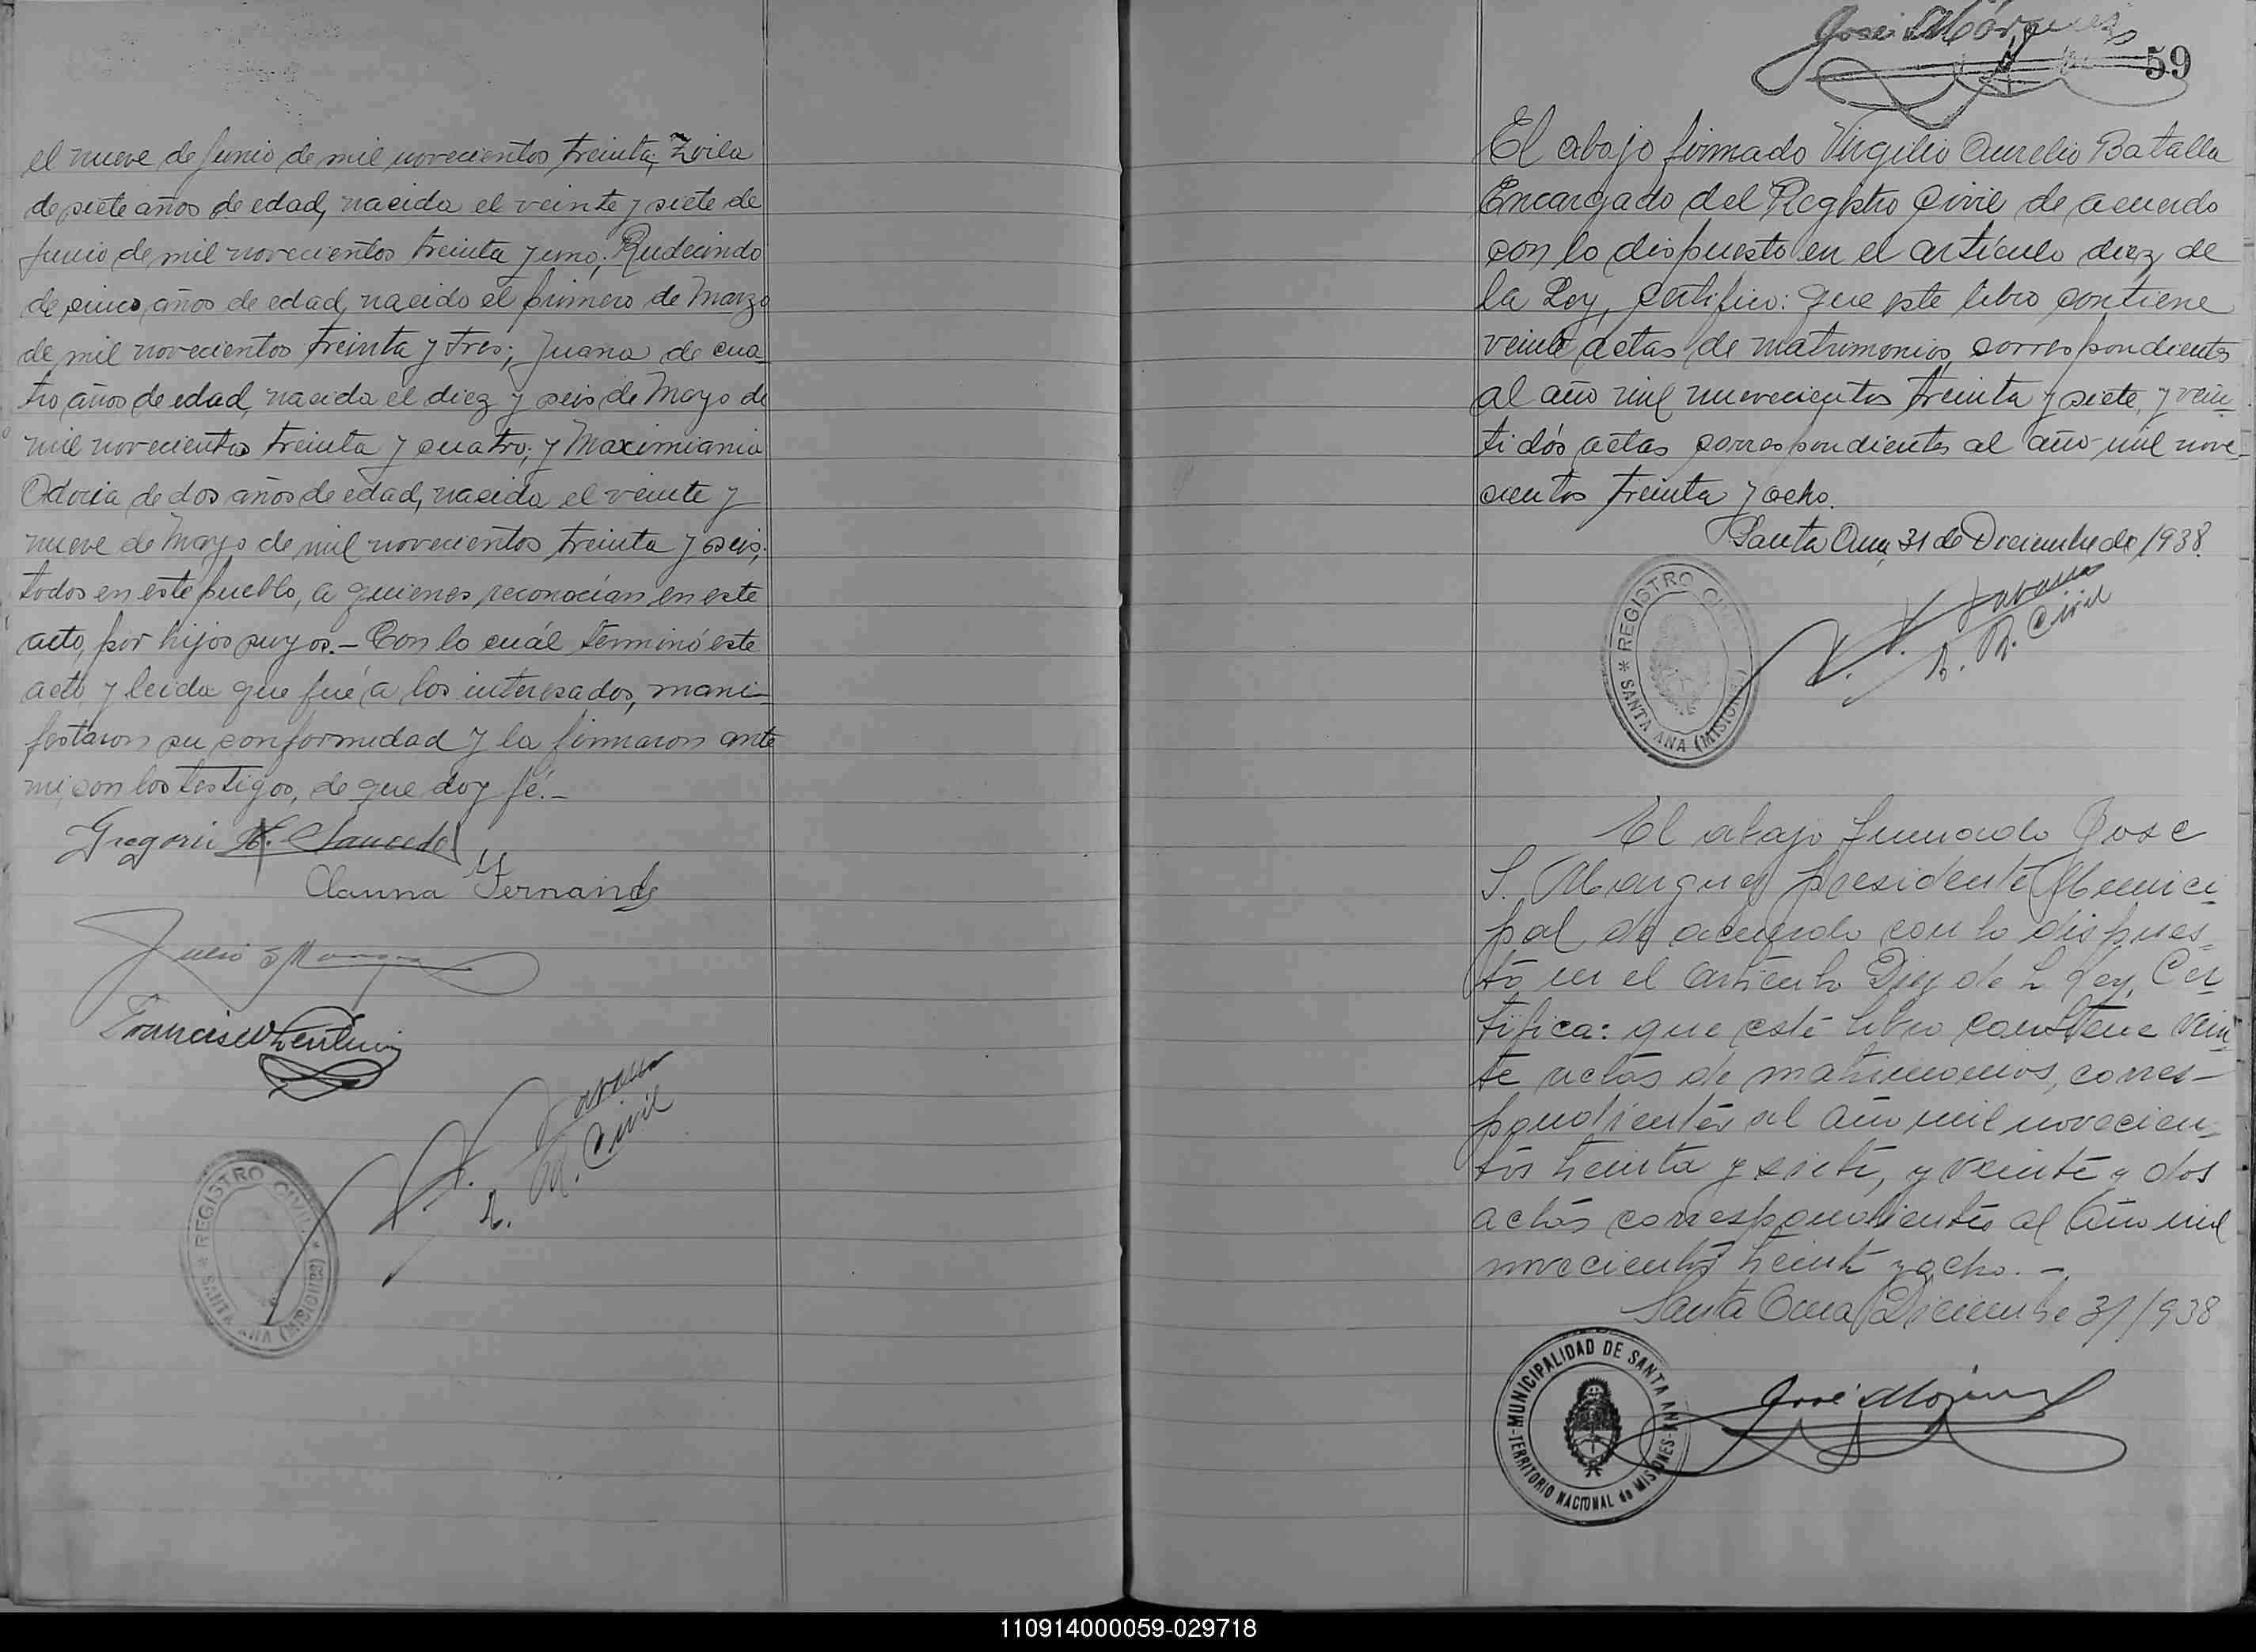 el nueve de Junio de mil novecientos treinta; Zoila
de siete años de edad, nacida el veinte y siete de
Junio de mil novecientos treinta y uno; Rudecindo
de cinco años de edad, nacido el primero de Marzo
de mil novecientos treinta y tres; Juana de cua-
tro años de edad, nacida el diez y seis de Mayo de
mil novecientos treinta y cuatro; y Maximiania
Odoria de dos años de edad, nacida el veinte y
nueve de Mayo de mil novecientos treinta y seis;
todos en este pueblo, a quienes reconocían en este
acto, por hijos suyos.- Con lo cuál terminó este
acto, y leida que fué a los interesados, mani-
festaron su conformidad y la firmaron ante
mi, con los testigos, de que doy fé.-
Gregorio
Fernandes
Julio
Francisco
R. Civil
REGISTRO CIVIL * SANTA ANA (MISIONES) *
José Márquez
59
El abajo firmado Virgilio Aurelio Batalla
Encargado del Registro Civil de acuerdo
con lo dispuesto en el artículo diez de
la Ley, certifico: que este libro contiene
veinte actas de matrimonios correspondientes
al año mil nuevecientos treinta y siete, y vein-
tidós actas correspondientes al año mil nove-
cientos treinta y ocho.
Santa Ana, 31 de Diciembre de 1938.
REGISTRO CIVIL * SANTA ANA (MISIONES)
R. Civil
El abajo firmado Jose
S. Marquez presidente Munici-
pal de acuerdo con lo dispues-
to en el artículo Diez de la Ley, Cer-
tifica: que este libro contiene vein-
te actas de matrimonios, corres-
pondientes al año mil novecien-
tos treinta y siete, y veinte y dos
actas correspondientes al año mil
novecientos treinta y ocho.-
Santa Ana Diciembre 31/938
MUNICIPALIDAD DE SANTA ANA -TERRITORIO NACIONAL de MISIONES-
José
110914000059-029718